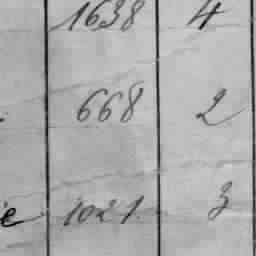 1638 4
668 2
e 1021 3